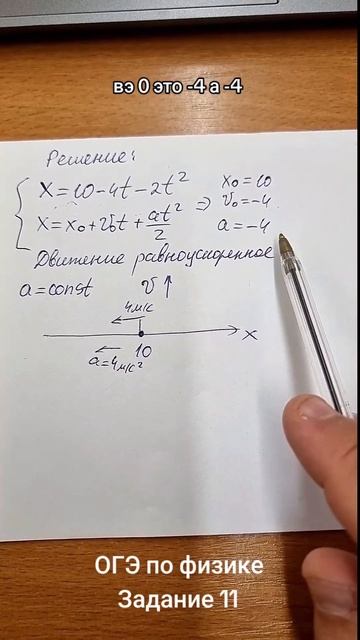 вэ 0 это -4 а -4
Решение:
x = 10 - 4t - 2t²
x₀ = 10
x = x₀ + v₀t + at²/2 ⇒
v₀ = -4
a = -4
Движение равноускоренное
a = const
v ↑
4 м/с
x
10
a = 4 м/с²
ОГЭ по физике
Задание 11